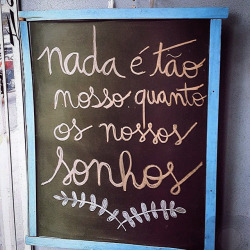 nada é tão
nosso quanto
os nossos
sonhos